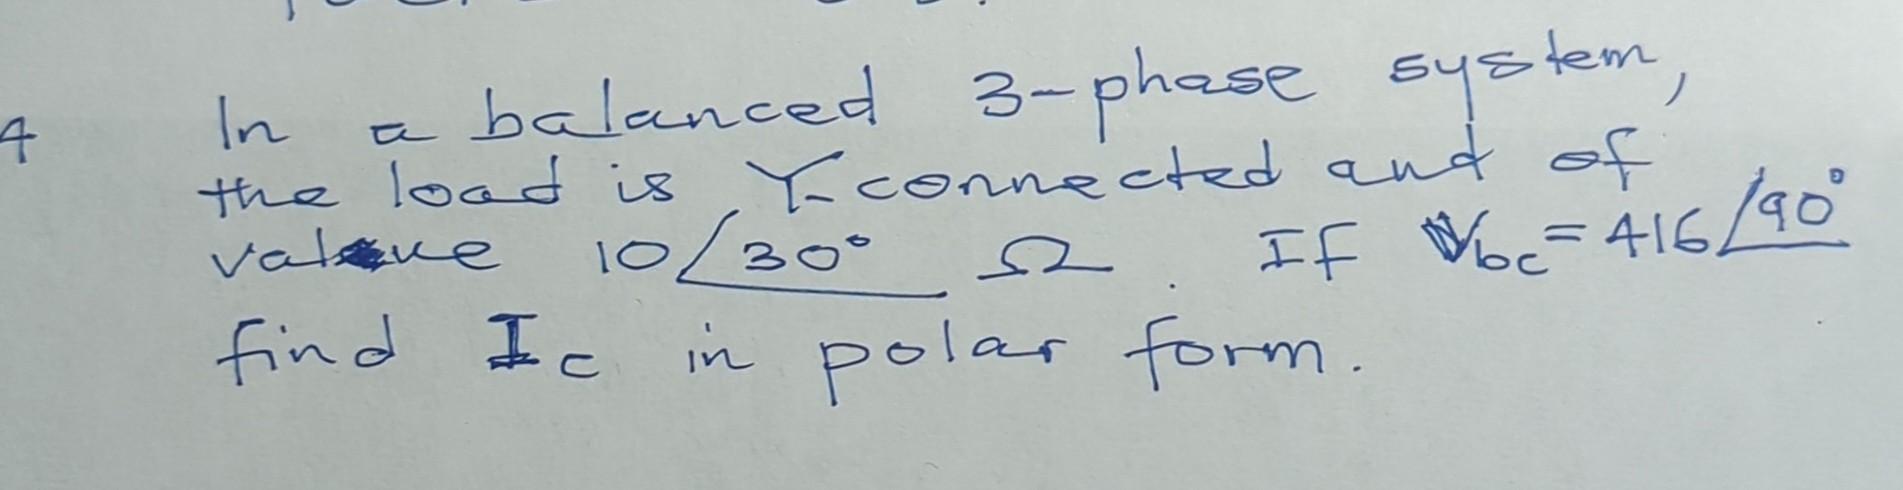 4 In a balanced 3-phase system,
the load is Y-connected and of
value 10∠30° Ω. If Vbc = 416∠90°
find Ic in polar form.